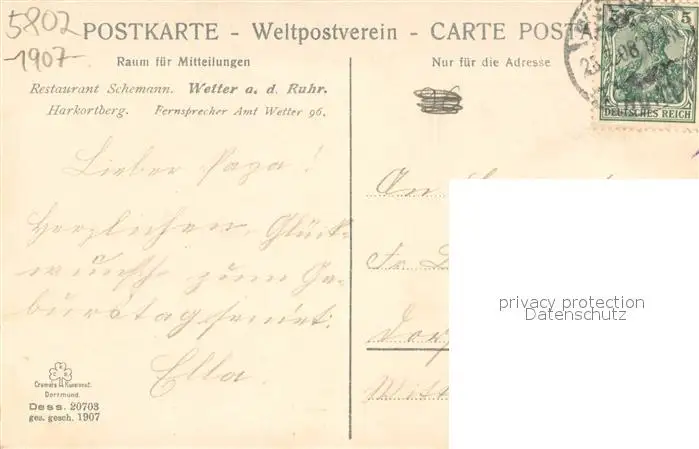 5802
1907
POSTKARTE - Weltpostverein - CARTE POSTA
Raum für Mitteilungen
Nur für die Adresse
5
5
DEUTSCHES REICH
Restaurant Schemann. Wetter a. d. Ruhr.
Harkortberg. Fernsprecher Amt Wetter 96.
Lieber Papa!
Herzlichen Glück-
wunsch zum Ge-
burtstag sendet
Ella.
An
Fr
privacy protection
Datenschutz
Cramers Kunstanst.
Dortmund.
Dess. 20703
ges. gesch. 1907